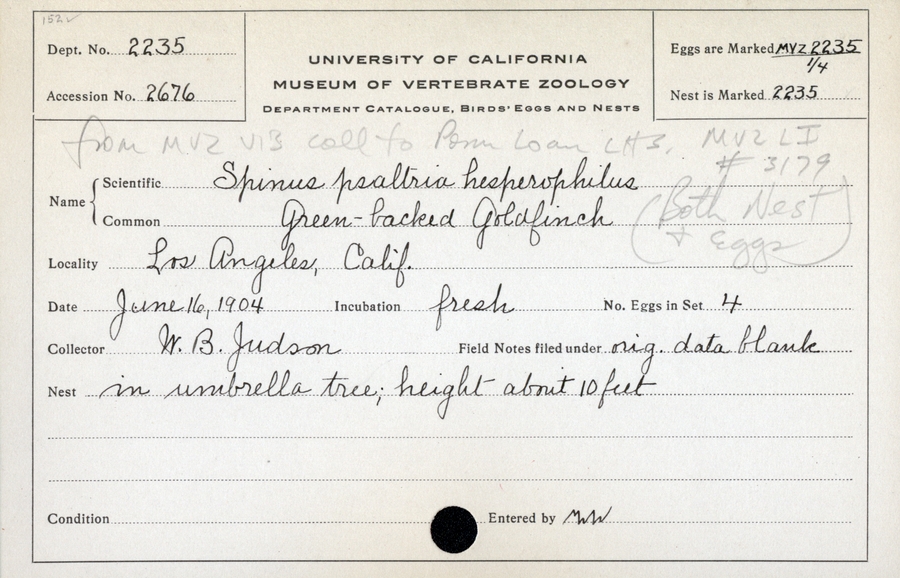 152
Dept. No. 2235
Accession No. 2676
UNIVERSITY OF CALIFORNIA
MUSEUM OF VERTEBRATE ZOOLOGY
DEPARTMENT CATALOGUE, BIRDS' EGGS AND NESTS
Eggs are Marked MVZ 2235
1/4
Nest is Marked 2235
from MVZ VIB coll to Perm Loan LHS. MVZ LI
# 3179
Name Scientific Spinus psaltria hesperophilus
Common Green-backed Goldfinch
(Both Nest
+ eggs)
Locality Los Angeles, Calif.
Date June 16, 1904 Incubation fresh No. Eggs in Set 4
Collector W. B. Judson Field Notes filed under orig. data blank
Nest in umbrella tree; height about 10 feet
Condition Entered by